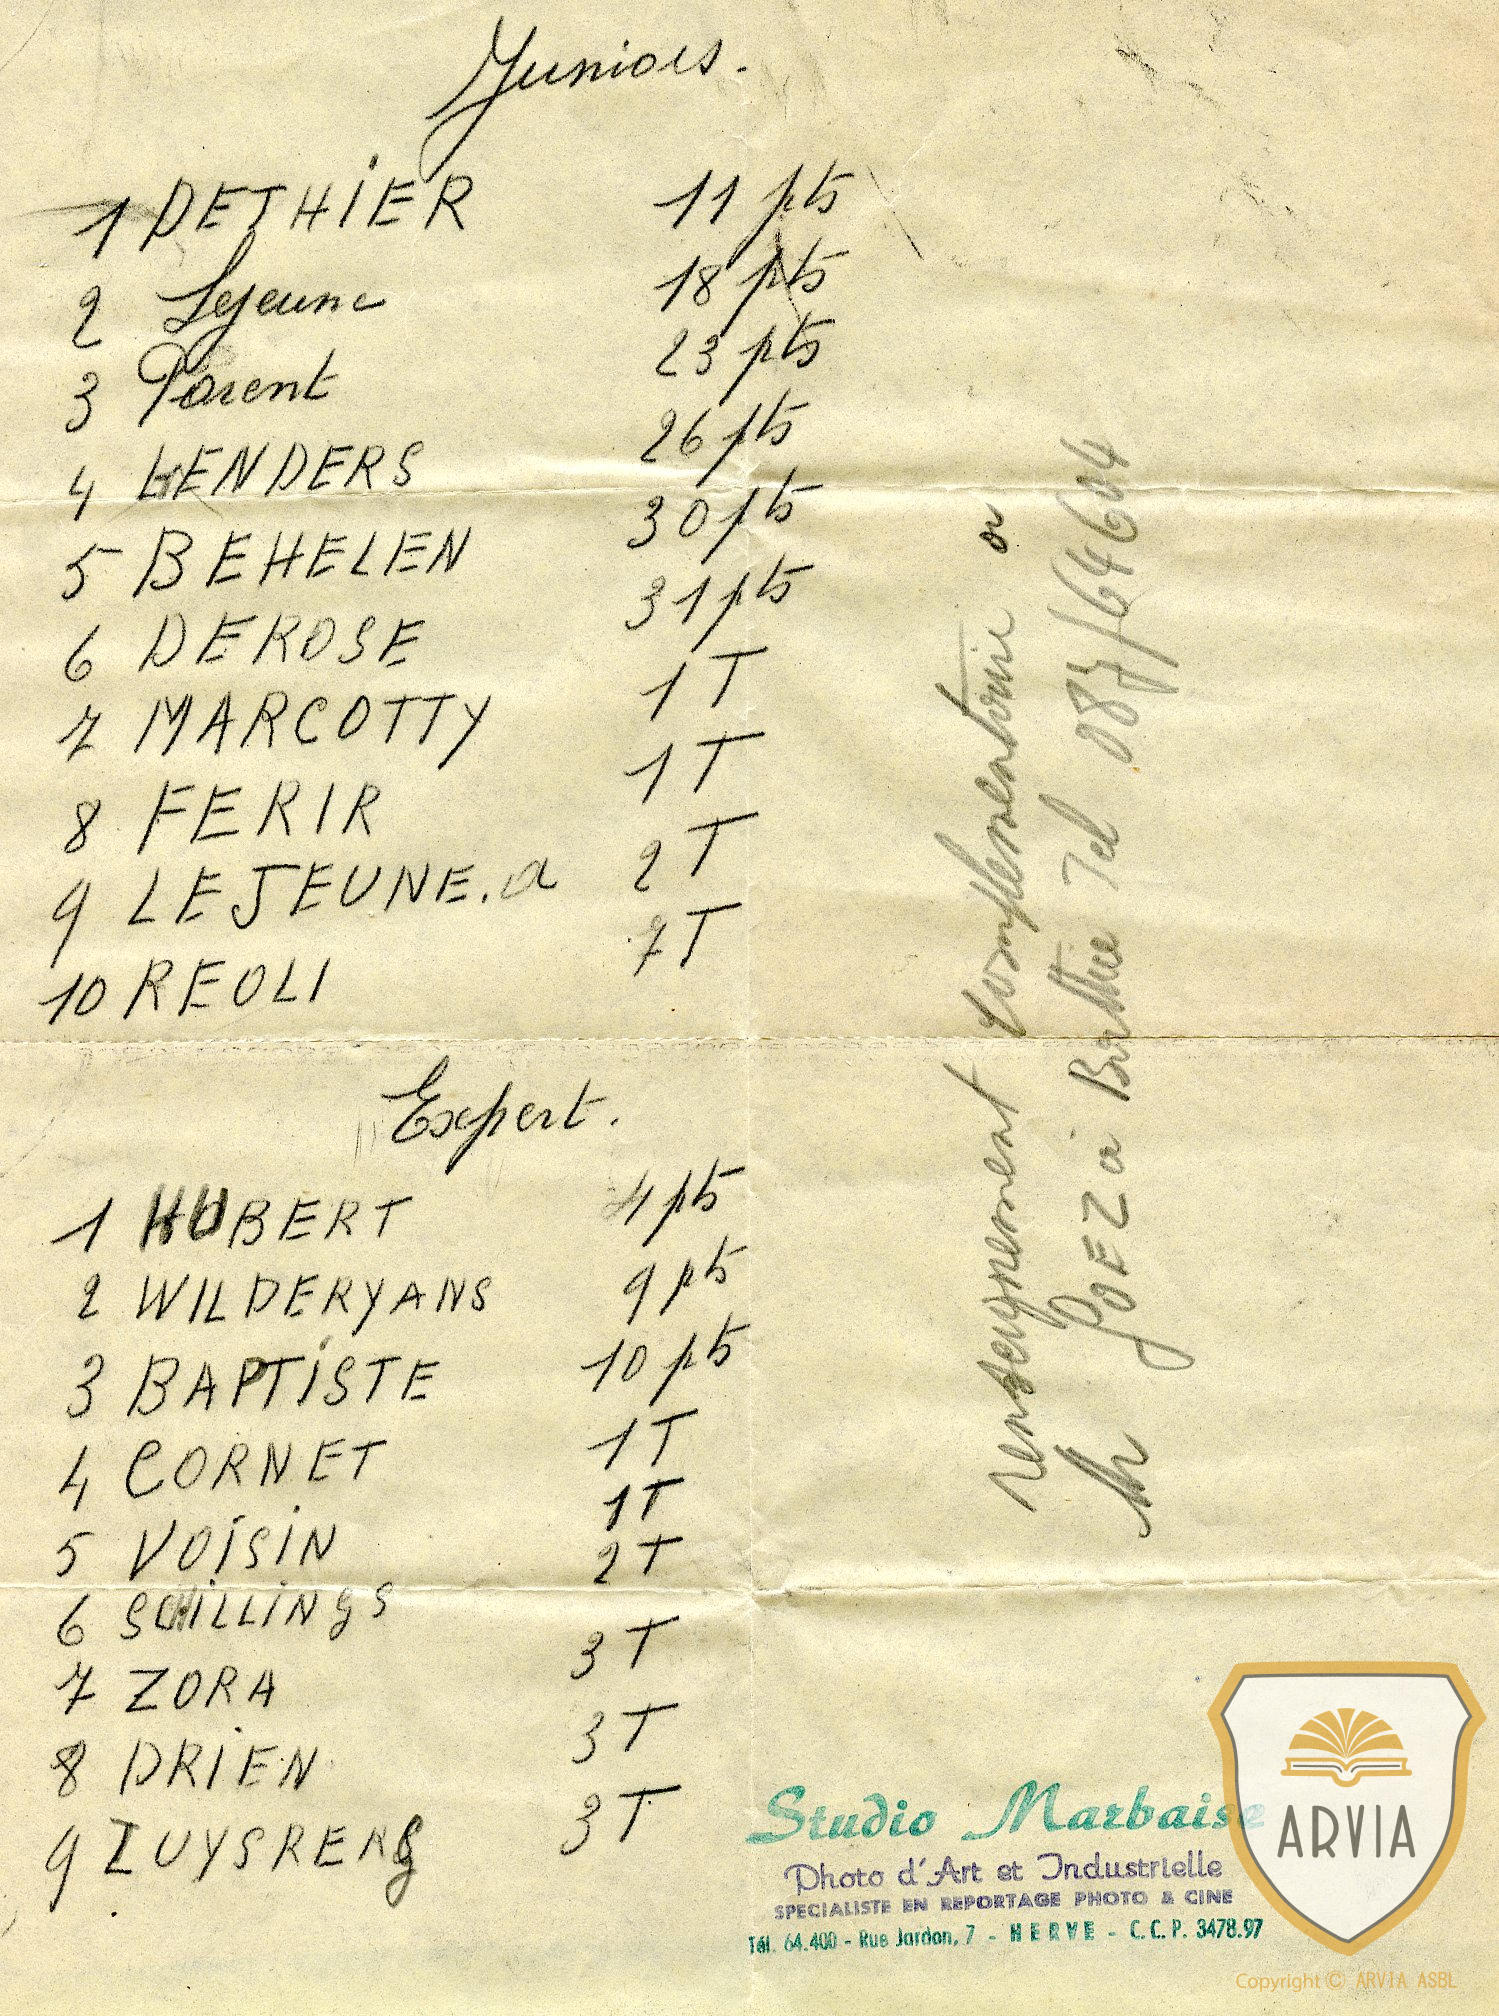 Juniors.
1 DETHIER 11 pts
2 Lejeune 18 pts
3 Parent 23 pts
4 LENDERS 26 pts
5 BEHELEN 30 pts
6 DEROSE 31 pts
7 MARCOTTY 1 T
8 FERIR 1 T
9 LEJEUNE. a 2 T
10 REOLI 7 T
Expert.
1 HUBERT 4 pts
2 WILDERYANS 9 pts
3 BAPTISTE 10 pts
4 CORNET 1 T
5 VOISIN 1 T
6 SCHILLINGS 2 T
7 ZORA 3 T
8 DRIEN 3 T
9 ZUYSRENG 3 T
renseignement complementaire a
Mr GOEZ à Battice Tel 087/64604
Studio Marbaise
Photo d'Art et Industrielle
SPECIALISTE EN REPORTAGE PHOTO & CINE
Tél. 64.400 - Rue Jardon, 7 - HERVE - C.C.P. 3478.97
ARVIA
Copyright © ARVIA ASBL